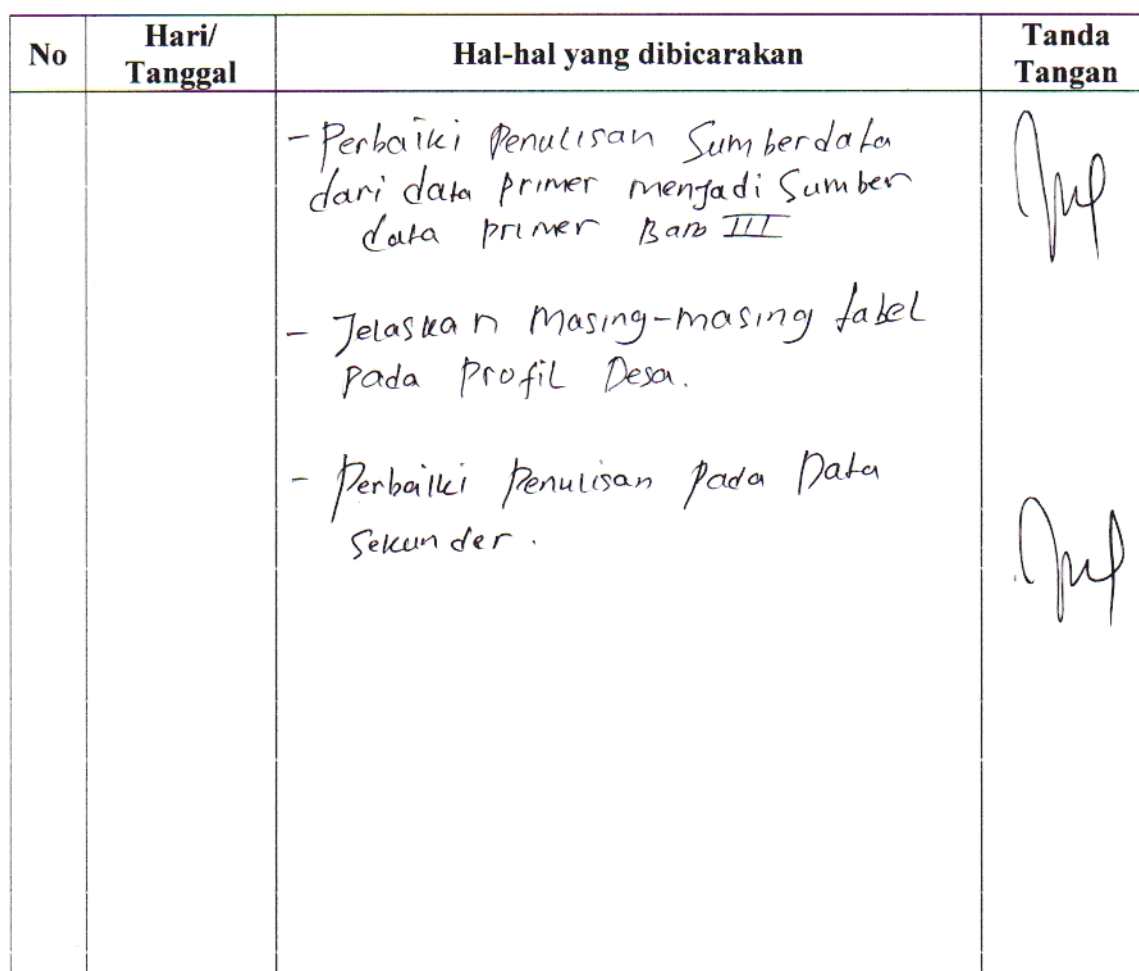 No
Hari/
Tanggal
Hal-hal yang dibicarakan
Tanda
Tangan
- Perbaiki Penulisan Sumberdata
dari data primer menjadi Sumber
data primer Bab III
- Jelaskan Masing-masing tabel
pada Profil Desa.
- Perbaiki Penulisan Pada Data
Sekunder.